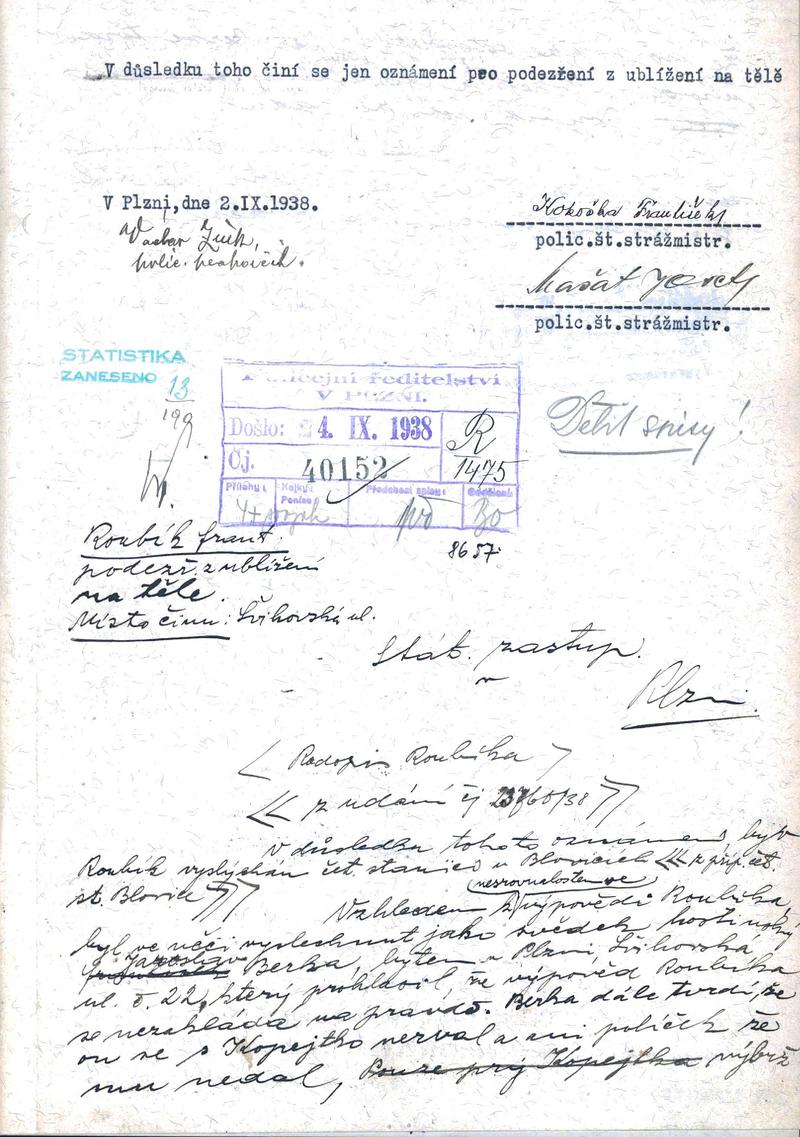 V důsledku toho činí se jen oznámení pro podezření z ublížení na tělě
V Plzni, dne 2.IX.1938.
František
polic.št.strážmistr.
polic. 
Mašát Josef
polic.št.strážmistr.
STATISTIKA
ZANESENO 13
199
Policejní ředitelství
V PLZNI.
Došlo: 4. IX. 1938
R
1475
Čj. 40152
Přílohy:
Kolky:
Peníze:
Předchozí spisy:
Oddělení:
8657
Dětit spisy!
Roubík Frant.
podezř. z ublížení
na těle.
Místo činu: Švihovská ul.
Stát. zastup.
v
Plzni.
Rodopis Roubíka
z udání čj 23760/38
V důsledku tohoto oznámení byl
Roubík vyslýchán čet. stanicí v Blovicích z příp. čet.
st. Blovice
nesrovnalostem ve
Vzhledem k výpovědi Roubíka,
byl ve věci vyslechnut jako svědek hostinský
Jaroslav Berka, bytem v Plzni, Švihovská
ul. č. 22, který prohlásil, že výpověď Roubíka
se nezakládá na pravdě. Berka dále tvrdí, že
on se s Kopejtko nerval a ani políček že
mu nedal, Pouze prý Kopejtka nýbrž